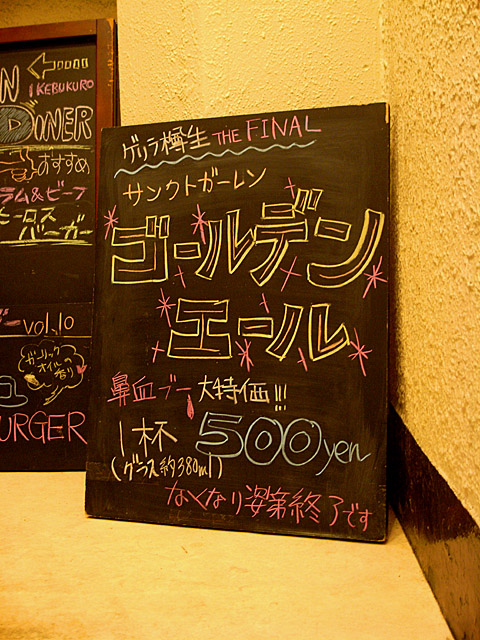 N
IKEBUKURO
DINER
おすすめ
ラム&ビーフ
ヒーロス
バーガー
vol.10
ガーリック
オイル
香り
URGER
ゲリラ樽生 THE FINAL
サンクトガーレン
ゴールデン
エール
鼻血ブー 大特価!!!
1杯 500yen
(グラス約380ml)
なくなり次第終了です